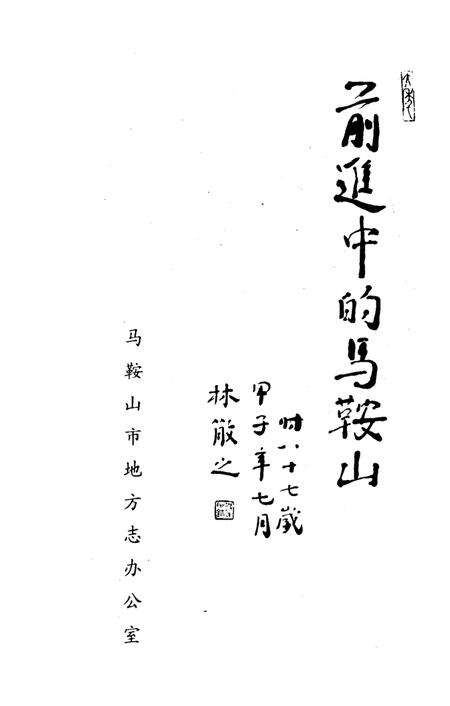 前進中的馬鞍山
甲子年七月
时八十七歲
林散之
马鞍山市地方志办公室